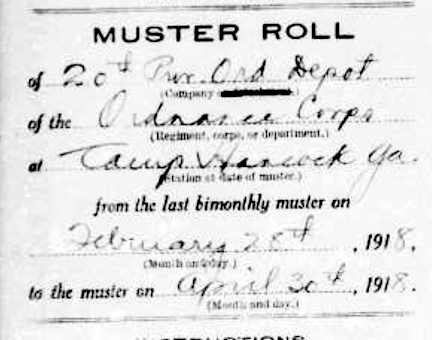 MUSTER ROLL
of 20th Prov. Ord Depot
(Company
of the Ordnance Corps
(Regiment, corps, or department.)
at Camp Hancock Ga.
(Station at date of muster.)
from the last bimonthly muster on
February 28th, 1918,
(Month and day.)
to the muster on April 30th, 1918.
(Month and day.)
INSTRUCTIONS